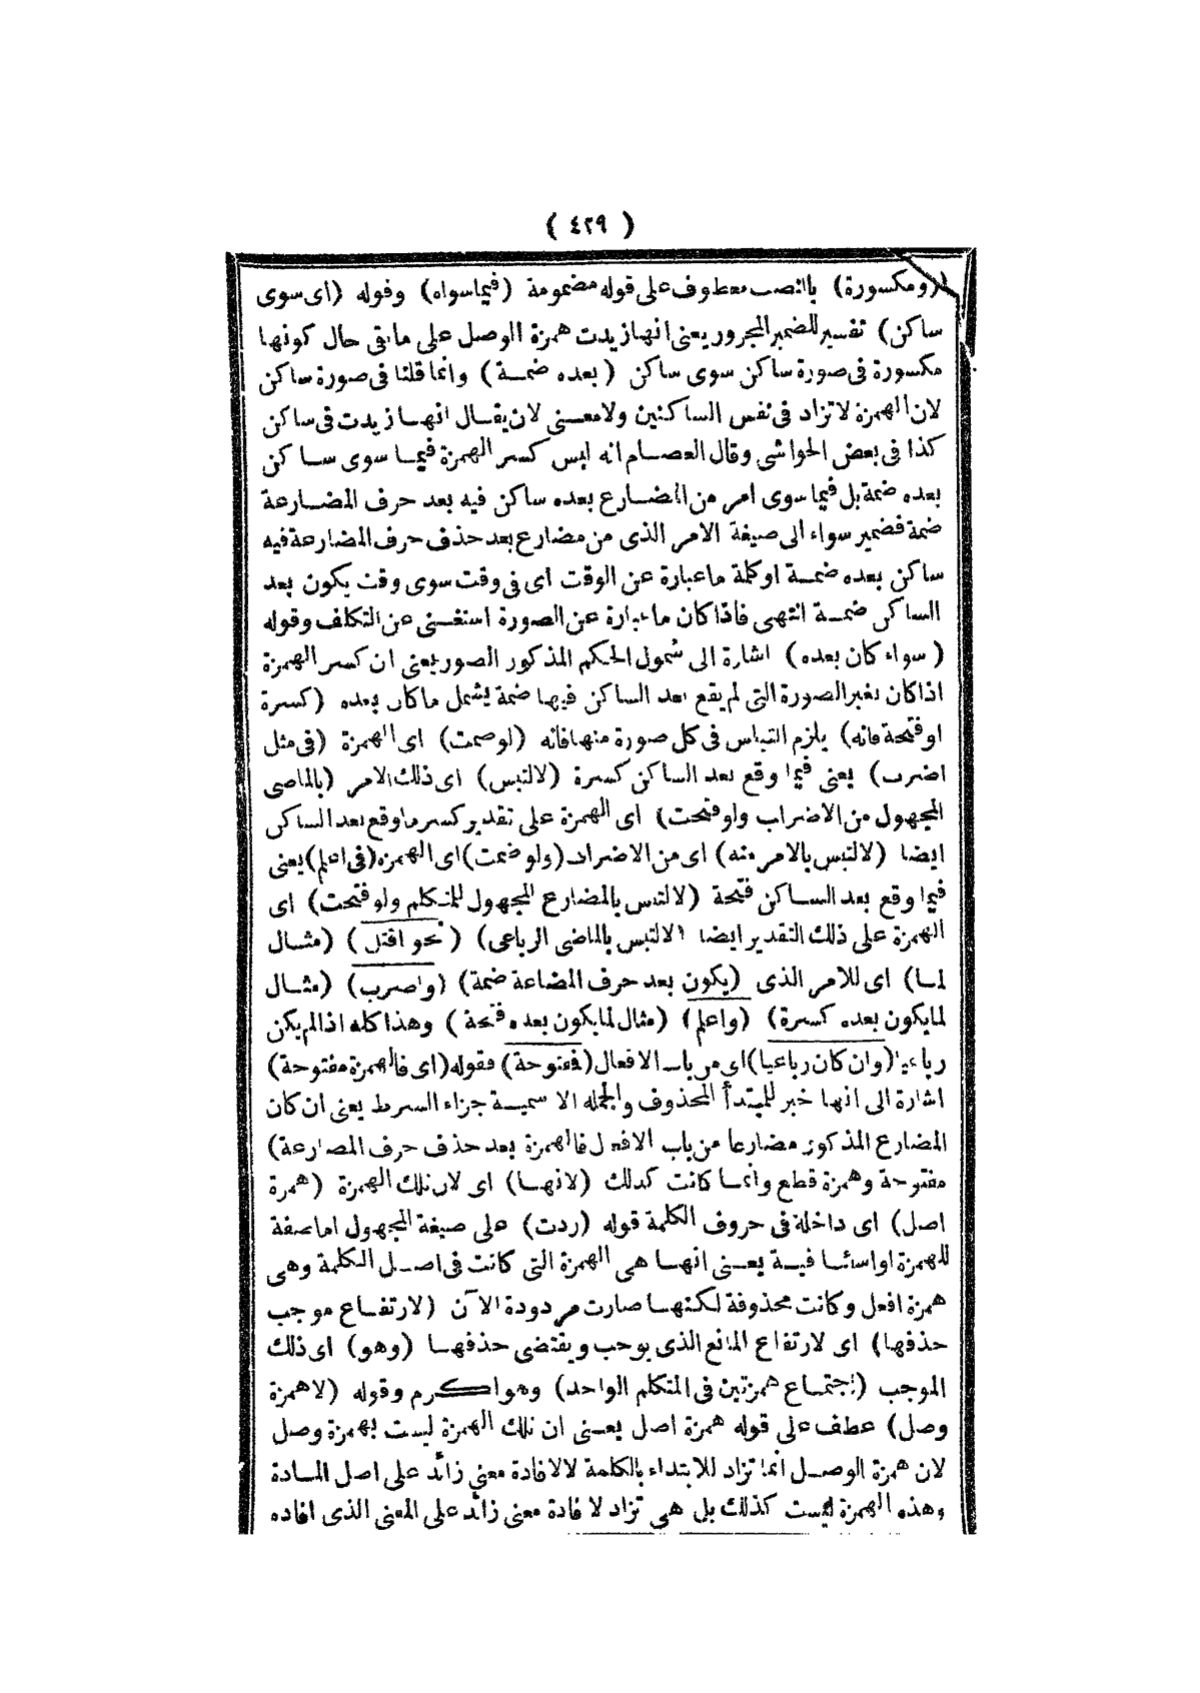 ( ٤٢٩ )
(ومكسورة) بالنصب معطوف على قوله مضمومة (فيما سواه) وقوله (اى سوى
ساكن) تفسير للضمير المجرور يعنى انها زيدت همزة الوصل على ما بقى حال كونها
مكسورة فى صورة ساكن سوى ساكن (بعده ضمة) وانما قلنا فى صورة ساكن
لان الهمزة لا تزاد فى نفس الساكنين ولا معنى لان يقال انها زيدت فى ساكن
كذا فى بعض الحواشى وقال العصام انه ليس كسر الهمزة فيما سوى ساكن
بعده ضمة بل فيما سوى امر من المضارع بعده ساكن فيه بعد حرف المضارعة
ضمة فضمير سواه الى صيغة الامر الذى من مضارع بعد حذف حرف المضارعة فيه
ساكن بعده ضمة او كلمة ما عبارة عن الوقت اى فى وقت سوى وقت يكون بعد
الساكن ضمة انتهى فاذا كان ما عبارة عن الصورة استغنى عن التكلف وقوله
(سواء كان بعده) اشارة الى شمول الحكم المذكور الصور يعنى ان كسر الهمزة
اذا كان بغير الصورة التى لم يقع بعد الساكن فيها ضمة يشمل ما كان بعده (كسرة
او فتحة فانه) يلزم التباس فى كل صورة منها فانه (لو ضمت) اى الهمزة (فى مثل
اضرب) يعنى فيما وقع بعد الساكن كسرة (لالتبس) اى ذلك الامر (بالماضى
المجهول من الاضراب ولو فتحت) اى الهمزة على تقدير كسر ما وقع بعد الساكن
ايضا (لالتبس بالامر منه) اى من الاضراب (ولو ضمت) اى الهمزة (فى اعلم) يعنى
فيما وقع بعد الساكن فتحة (لالتبس بالمضارع المجهول للمتكلم ولو فتحت) اى
الهمزة على ذلك التقدير ايضا (لالتبس بالماضى الرباعى) (نحو اقتل) (مثال
لما) اى للامر الذى (يكون بعد حرف المضاعة ضمة) (واضرب) (مثال
لما يكون بعده كسرة) (واعلم) (مثال لما يكون بعده فتحة) وهذا كله اذا لم يكن
رباعيا (وان كان رباعيا) اى من باب الافعال (ففتوحة) فقوله (اى فالهمزة مفتوحة)
اشارة الى انها خبر للمبتدأ المحذوف والجملة الاسمية جزاء الشرط يعنى ان كان
المضارع المذكور مضارعا من باب الافعل فالهمزة بعد حذف حرف المضارعة)
مفتوحة وهمزة قطع وانما كانت كذلك (لانها) اى لان تلك الهمزة (همزة
اصل) اى داخلة فى حروف الكلمة قوله (ردت) على صيغة المجهول اما صفة
للهمزة او استئنافية يعنى انها هى الهمزة التى كانت فى اصل الكلمة وهى
همزة افعل وكانت محذوفة لكنها صارت مردودة الآن (لارتفاع موجب
حذفها) اى لارتفاع المانع الذى يوجب ويقتضى حذفها (وهو) اى ذلك
الموجب (اجتماع همزتين فى المتكلم الواحد) وهو اكرم وقوله (لا همزة
وصل) عطف على قوله همزة اصل يعنى ان تلك الهمزة ليست بهمزة وصل
لان همزة الوصل انما تزاد للابتداء بالكلمة لا لافادة معنى زائد على اصل المادة
وهذه الهمزة ليست كذلك بل هى تزاد لافادة معنى زائد على المعنى الذى افاده